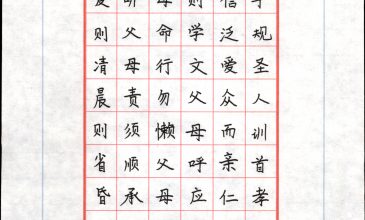 子规圣人训首孝
信泛爱众而亲仁
则学文父母呼应
母命行勿懒父母
听父母责须顺承
夏则清晨则省昏